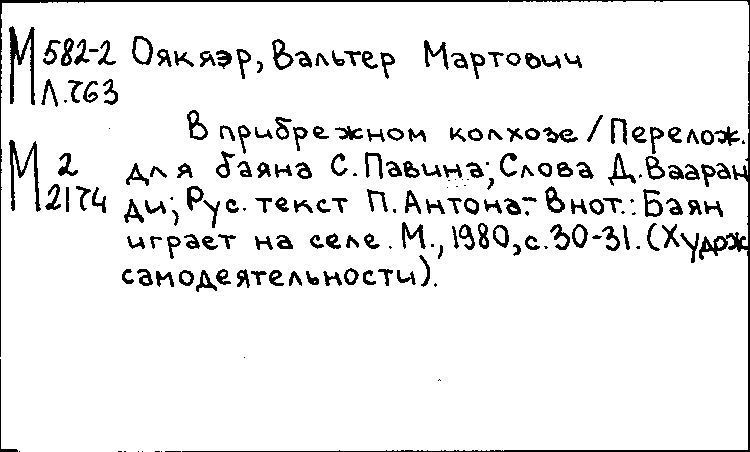 М 582-2 Оякяэр, Вальтер Мартович
Л.763
В прибрежном колхозе / Перелож.
М 2 для баяна С. Павина; Слова Д. Вааран
2174 ди; Рус. текст П. Антона.- В нот.: Баян
играет на селе. М., 1980, с. 30-31. (Худож
самодеятельности).